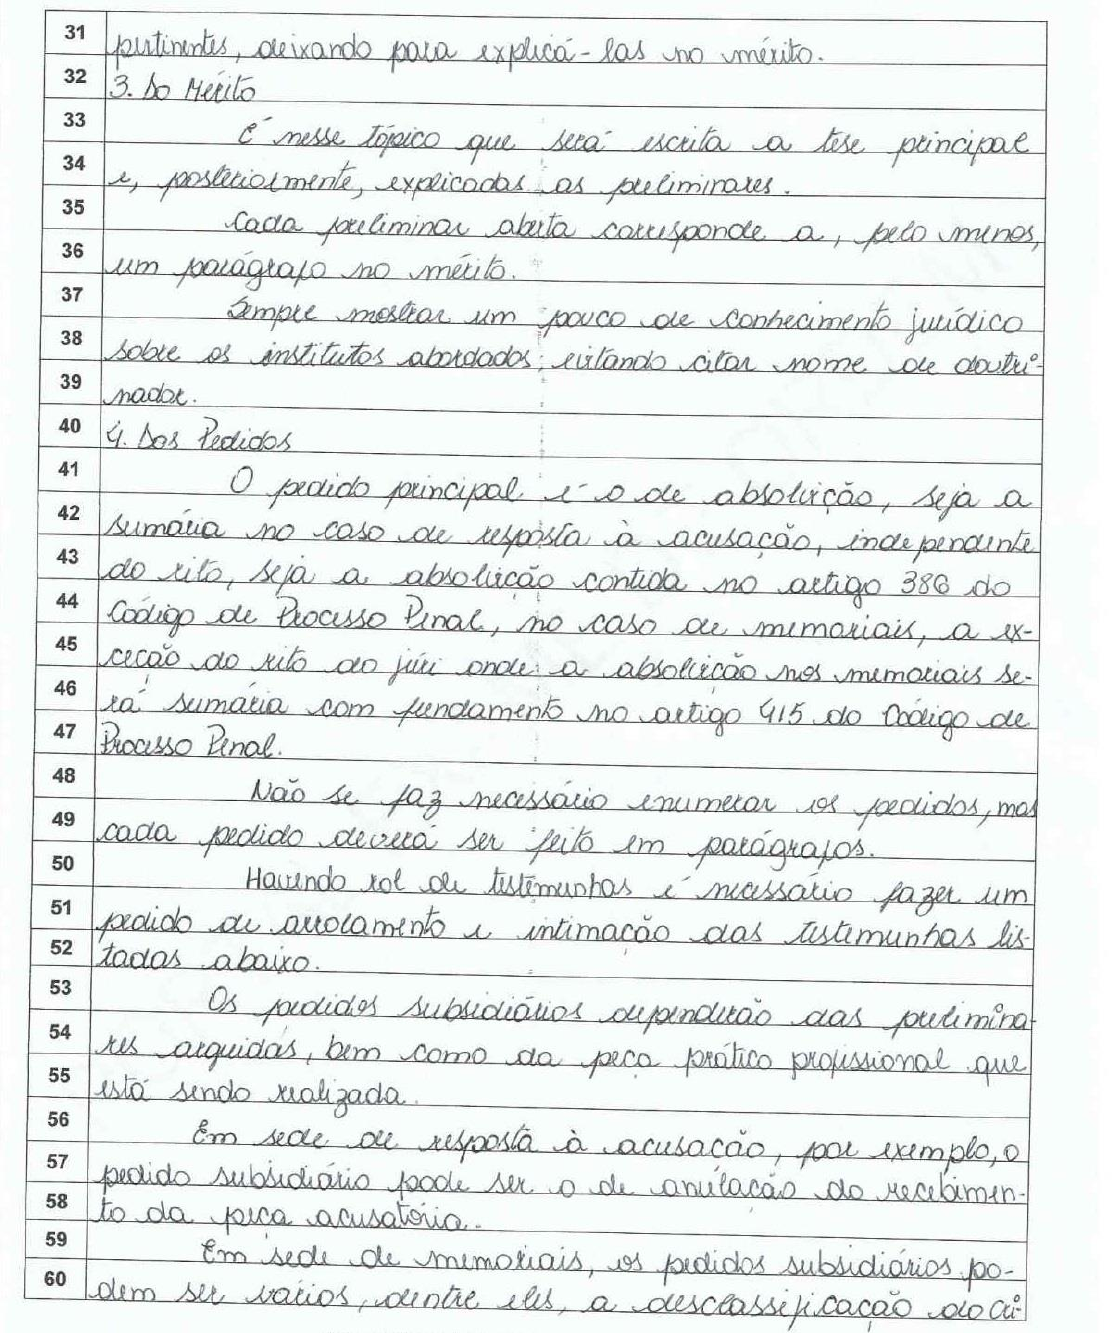 31 pertinentes, deixando para explicá-las no mérito.
32 3. Do Mérito
33 É nesse tópico que será escrita a tese principal
34 e, posteriormente, explicadas as preliminares.
35 Cada preliminar aberta corresponde a, pelo menos,
36 um parágrafo no mérito.
37 Sempre mostrar um pouco de conhecimento jurídico
38 sobre os institutos abordados, evitando citar nome de doutri-
39 nador.
40 4. Dos Pedidos
41 O pedido principal é o de absolvição, seja a
42 sumária no caso de resposta à acusação, independente
43 do rito, seja a absolvição contida no artigo 386 do
44 Código de Processo Penal, no caso de memoriais, a ex-
45 ceção do rito do júri onde a absolvição nos memoriais se-
46 rá sumária com fundamento no artigo 415 do Código de
47 Processo Penal.
48 Não se faz necessário enumerar os pedidos, mas
49 cada pedido deverá ser feito em parágrafos.
50 Havendo rol de testemunhas é necessário fazer um
51 pedido de arrolamento e intimação das testemunhas lis-
52 tadas abaixo.
53 Os pedidos subsidiários dependerão das prelimina-
54 res arguidas, bem como da peça prático profissional que
55 está sendo realizada.
56 Em sede de resposta à acusação, por exemplo, o
57 pedido subsidiário pode ser o de anulação do recebimen-
58 to da peça acusatória.
59 Em sede de memoriais, os pedidos subsidiários po-
60 dem ser vários, dentre eles, a desclassificação do cri-